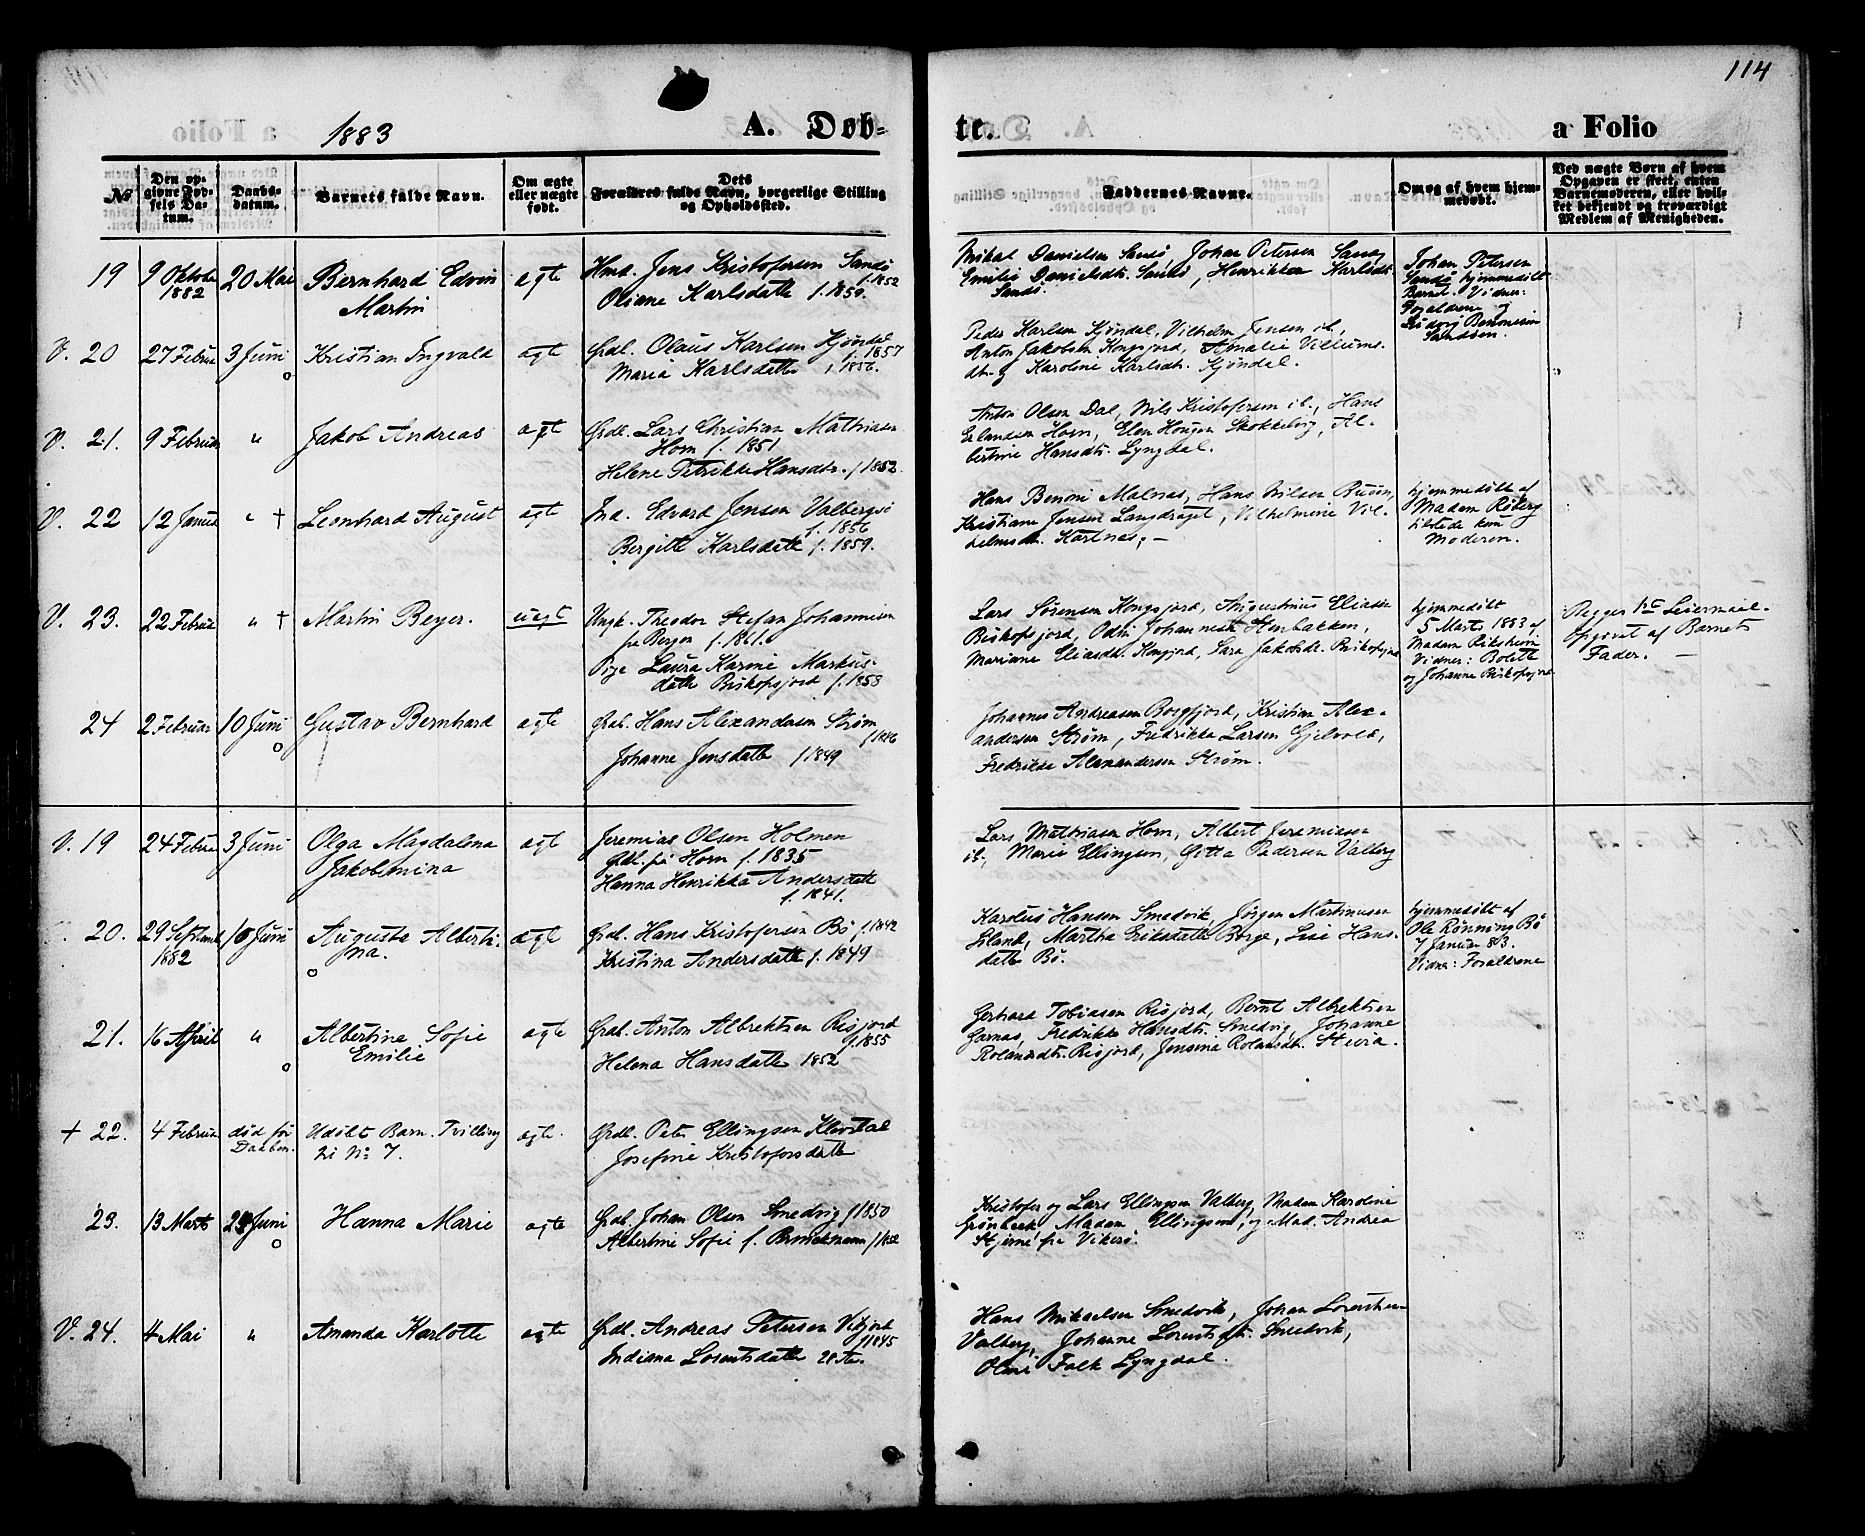 114
1883
A. Døb=
te.
a Folio
No
Den op-
givne Fød-
sels Da-
tum.
Daabs-
datum.
Barnets fulde Navn.
Om ægte
eller uægte
født.
Dets
Forældres fulde Navn, borgerlige Stilling
og Opholdssted.
Faddernes Navne.
Om og af hvem hjem-
medøbt.
Ved uægte Børn af hvem
Opgaven er skeet, enten
Barnemoderen, eller hvil-
ket bekjendt og troværdigt
Medlem af Menigheden.
19
9 Oktober
1882
20 Mai
Bernhard Edvin
Martin
ægte
Hmd. Jens Kristofersen Sandø
f. 1852
Oliane Karlsdatte f. 1850.
Mikal Danielsen Sandø, Johan Petersen Sandø,
Emilie Danielsdt. Sandø, Henrikka Karlsdt.
Sandø.
Johan Petersen
Sandø hjemmedøbt
Barnet. Vidner:
Forældrene og
Ludvig Benonisen
Sandøen.
V. 20
27 Februar
3 Juni
Kristian Ingvald
ægte
Grdl. Olaus Karlsen Kjøndal
f. 1857
Maria Karlsdatte f. 1856.
Peder Karlsen Kjøndal, Vilhelm Jensen ib.,
Anton Jakobsen Kongsfjord, Amalie Villums-
dt. og Karoline Karlsdt. Kjøndal.
V. 21.
9 Februar
"
Jakob Andreas
ægte
Grdl. Lars Christian Mathiasen
Horn f. 1851
Helene Petrikke Hansdtr. f 1852.
Anton Olsen Dal, Nils Kristofersen ib., Hans
Erlandsen Horn, Elen Hougen Skokkelvig, Al-
bertine Hansdtr. Lyngdal.
V. 22
12 Januar
" †
Leonhard August
ægte
Ind. Edvard Jensen Valbergsø
f. 1856
Bergitte Karlsdatte f. 1859.
Hans Benoni Malnæs, Hans Nilsen Buøen,
Kristiane Jensen Langdraget, Vilhelmine Vil-
helmsdt. Kartnæs, -
hjemmedøbt af
Madam Röberg
tilstede kun
Moderen.
V. 23.
22 Februar
" †
Martin Beyer.
uegt
Ungk. Theodor Stefan Johannesen
fra Bergen f. 1861.
Pige Laura Karine Markus-
datte Biskopsfjord f. 1858
Lars Sørensen Kongsfjord, Augustinus Eliasen
Biskopsfjord, Odin Johannesen Henbakken,
Mariane Eliasdt. Kongsfjord, Sara Jakobsdt. Biskopsfjord
hjemmedøbt
5 Marts 1883 af
Madam Rikstrim.
Vidner: Bolette
og Johanna Biskopsfjord
Begges Leiermaal.
opgivet af Barnets
Fader. -
24
2 Februar
10 Juni
Gustav Bernhard
ægte
Grdl. Hans Alexandersen Strøm
f 1846
Johanne Jensdatte f 1849
Johannes Andreasen Borgfjord, Kristian Alex-
andersen Strøm, Fredrikka Larsen Gjelvold,
Fredrikke Alexandersen Strøm.
V. 19
24 Februar
3 Juni
Olga Magdalena
Jakobmina
ægt
Jeremias Olsen Holmen
Grdl. på Horn f. 1835
Hanna Henrikka Andersdatte
f. 1841.
Lars Mathiasen Horn, Albert Jeremiasen
ib., Marie Ellingsen, Gitta Pedersen Valberg
20.
29 Septemb
1882
10 Juni
Auguste Alberti-
na.
ægte
Grdl. Hans Kristofersen Bø f. 1842
Kristina Andersdatte f. 1849
Karolus Hansen Smedvik, Jørgen Martinusen
Island, Martha Eriksdatte Borge, Lise Hans-
datte Bø.
hjemmedøbt af
Ole Rønning Bø
7 Januar 83.
Vidner: Forældrene
21.
16 April
"
Albertine Sofie
Emilie
ægte
Grdl. Anton Albrektsen Risjord
f. 1855
Helena Hansdatte 1852
Gerhard Tobiasen Risjord, Bernt Albrektsen
Garnæs, Fredrikke Hansdtr. Smedvig, Johanne
Rolandsdt. Risjord, Jensina Rolandsdt. Stevia.
† 22.
4 Februar
død før
Daaben.
Udøbt Barn. Tvilling
til No 7.
ægte.
Grdl. Peter Ellingsen Klevstad
Josefine Kristofersdatte
23.
13 Marts
24 Juni
Hanna Marie
ægte
Grdl. Johan Olsen Smedvig f 1850
Albertine Sofie f. Brinckmann f 1852
Kristofer og Lars Ellingsen Valberg, Madam Karoline
Grønbeck, Madam Ellingsen, og Mad. Andrea
Stjerne fra Vikerø.
V. 24.
4 Mai
"
Amanda Karlotte
ægte
Grdl. Andreas Petersen Vikjord
f 1845
Indiana Lorentsdatte 28 Aar.
Hans Mikaelsen Smedvik, Johan Lorentsen
Valberg, Johanne Lorentsdt. Smedvik,
Oline Falk Lyngdal.